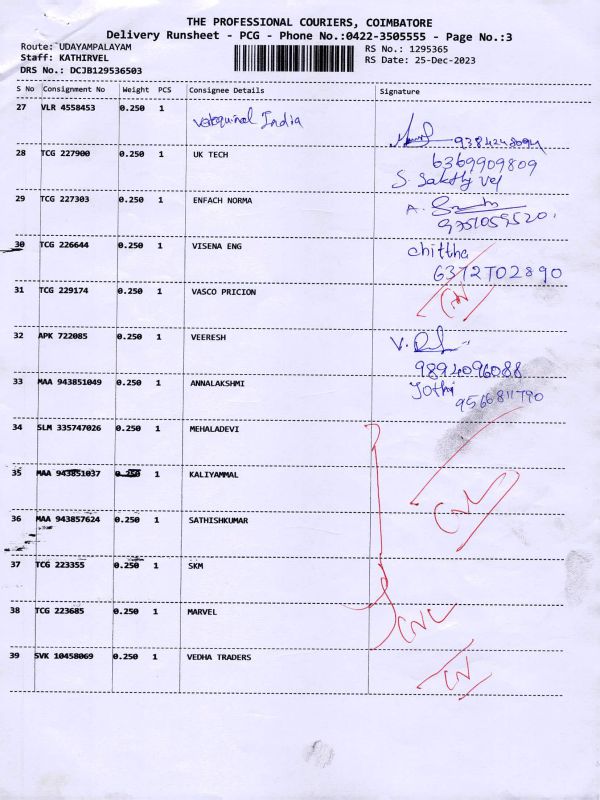 THE PROFESSIONAL COURIERS, COIMBATORE
Delivery Runsheet - PCG - Phone No.:0422-3505555 - Page No.:3
Route: UDAYAMPALAYAM RS No.: 1295365
Staff: KATHIRVEL RS Date: 25-Dec-2023
DRS No.: DCJB129536503
S No Consignment No Weight PCS Consignee Details Signature
27 VLR 4558453 0.250 1 India
28 TCG 227900 0.250 1 UK TECH 6369909809
S. Sakthy Vel
29 TCG 227303 0.250 1 ENFACH NORMA A.
30 TCG 226644 0.250 1 VISENA ENG chittha
6372702890
31 TCG 229174 0.250 1 VASCO PRICION CN
32 APK 722085 0.250 1 VEERESH V.
9894096088
33 MAA 943851049 0.250 1 ANNALAKSHMI Jothi
9566811790
34 SLM 335747026 0.250 1 MEHALADEVI
35 MAA 943851037 0.250 1 KALIYAMMAL CNL
36 MAA 943857624 0.250 1 SATHISHKUMAR
37 TCG 223355 0.250 1 SKM
38 TCG 223685 0.250 1 MARVEL CNL
39 SVK 10458069 0.250 1 VEDHA TRADERS CN